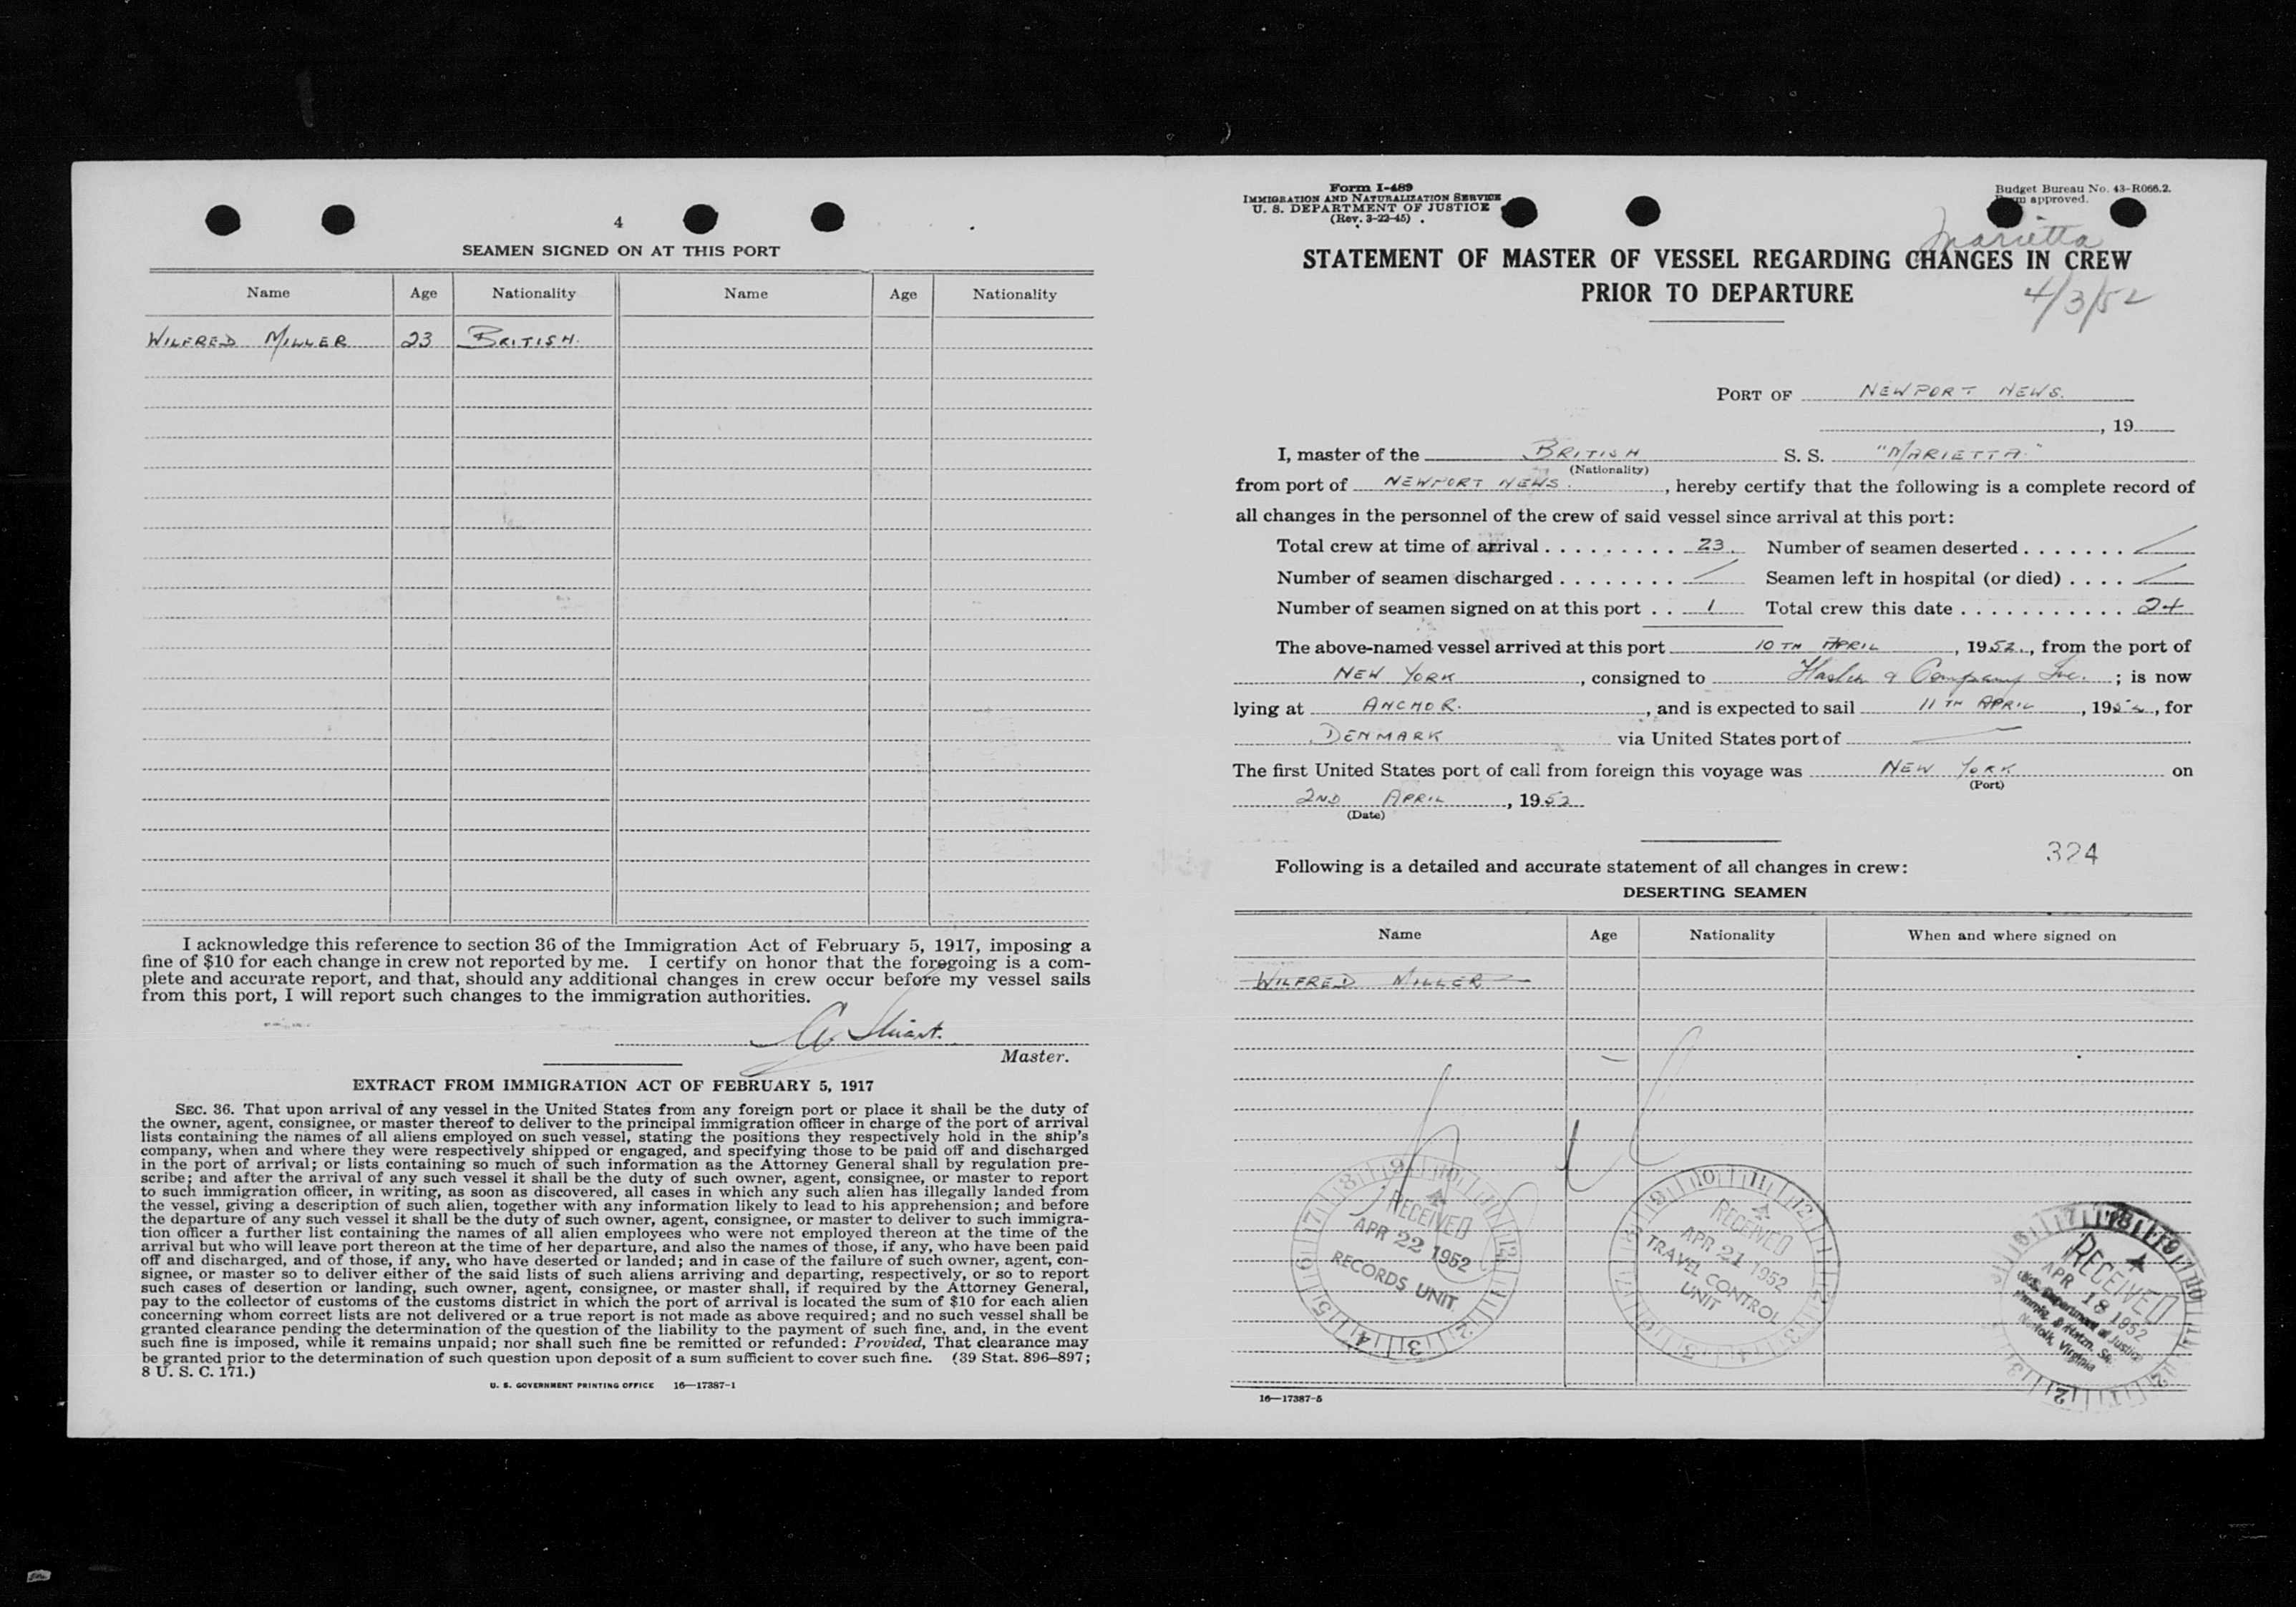 4
SEAMEN SIGNED ON AT THIS PORT
Name Age Nationality Name Age Nationality
WILFRED MILLER 23 BRITISH.
I acknowledge this reference to section 36 of the Immigration Act of February 5, 1917, imposing a
fine of $10 for each change in crew not reported by me. I certify on honor that the foregoing is a com-
plete and accurate report, and that, should any additional changes in crew occur before my vessel sails
from this port, I will report such changes to the immigration authorities.
Stuart.
Master.
EXTRACT FROM IMMIGRATION ACT OF FEBRUARY 5, 1917
SEC. 36. That upon arrival of any vessel in the United States from any foreign port or place it shall be the duty of
the owner, agent, consignee, or master thereof to deliver to the principal immigration officer in charge of the port of arrival
lists containing the names of all aliens employed on such vessel, stating the positions they respectively hold in the ship's
company, when and where they were respectively shipped or engaged, and specifying those to be paid off and discharged
in the port of arrival; or lists containing so much of such information as the Attorney General shall by regulation pre-
scribe; and after the arrival of any such vessel it shall be the duty of such owner, agent, consignee, or master to report
to such immigration officer, in writing, as soon as discovered, all cases in which any such alien has illegally landed from
the vessel, giving a description of such alien, together with any information likely to lead to his apprehension; and before
the departure of any such vessel it shall be the duty of such owner, agent, consignee, or master to deliver to such immigra-
tion officer a further list containing the names of all alien employees who were not employed thereon at the time of the
arrival but who will leave port thereon at the time of her departure, and also the names of those, if any, who have been paid
off and discharged, and of those, if any, who have deserted or landed; and in case of the failure of such owner, agent, con-
signee, or master so to deliver either of the said lists of such aliens arriving and departing, respectively, or so to report
such cases of desertion or landing, such owner, agent, consignee, or master shall, if required by the Attorney General,
pay to the collector of customs of the customs district in which the port of arrival is located the sum of $10 for each alien
concerning whom correct lists are not delivered or a true report is not made as above required; and no such vessel shall be
granted clearance pending the determination of the question of the liability to the payment of such fine, and, in the event
such fine is imposed, while it remains unpaid; nor shall such fine be remitted or refunded: Provided, That clearance may
be granted prior to the determination of such question upon deposit of a sum sufficient to cover such fine. (39 Stat. 896–897;
8 U. S. C. 171.)
U. S. GOVERNMENT PRINTING OFFICE 16—17387-1
Form I-489
IMMIGRATION AND NATURALIZATION SERVICE
U. S. DEPARTMENT OF JUSTICE
(Rev. 3-22-45)
Budget Bureau No. 43-R066.2.
approved.
Marietta
STATEMENT OF MASTER OF VESSEL REGARDING CHANGES IN CREW
PRIOR TO DEPARTURE
4/3/52
PORT OF NEWPORT NEWS.
, 19
I, master of the BRITISH S. S. "MARIETTA"
(Nationality)
from port of NEWPORT NEWS. , hereby certify that the following is a complete record of
all changes in the personnel of the crew of said vessel since arrival at this port:
Total crew at time of arrival . . . . . . . . . 23. Number of seamen deserted . . . . . . .
Number of seamen discharged . . . . . . . . Seamen left in hospital (or died) . . . .
Number of seamen signed on at this port . . 1 Total crew this date . . . . . . . . . . . 24
The above-named vessel arrived at this port 10TH APRIL , 1952, from the port of
NEW YORK , consigned to & Company Inc. ; is now
lying at ANCHOR. , and is expected to sail 11TH APRIL , 1952, for
DENMARK via United States port of
The first United States port of call from foreign this voyage was NEW YORK on
(Port)
2ND APRIL , 1952
(Date)
324
Following is a detailed and accurate statement of all changes in crew:
DESERTING SEAMEN
Name Age Nationality When and where signed on
WILFRED MILLER
RECEIVED
APR 22 1952
RECORDS UNIT
RECEIVED
APR 21 1952
TRAVEL CONTROL
UNIT
RECEIVED
APR 18 1952
U.S. Department of Justice
Immig. & Natzn. Se.
Norfolk, Virginia
16—17387-5